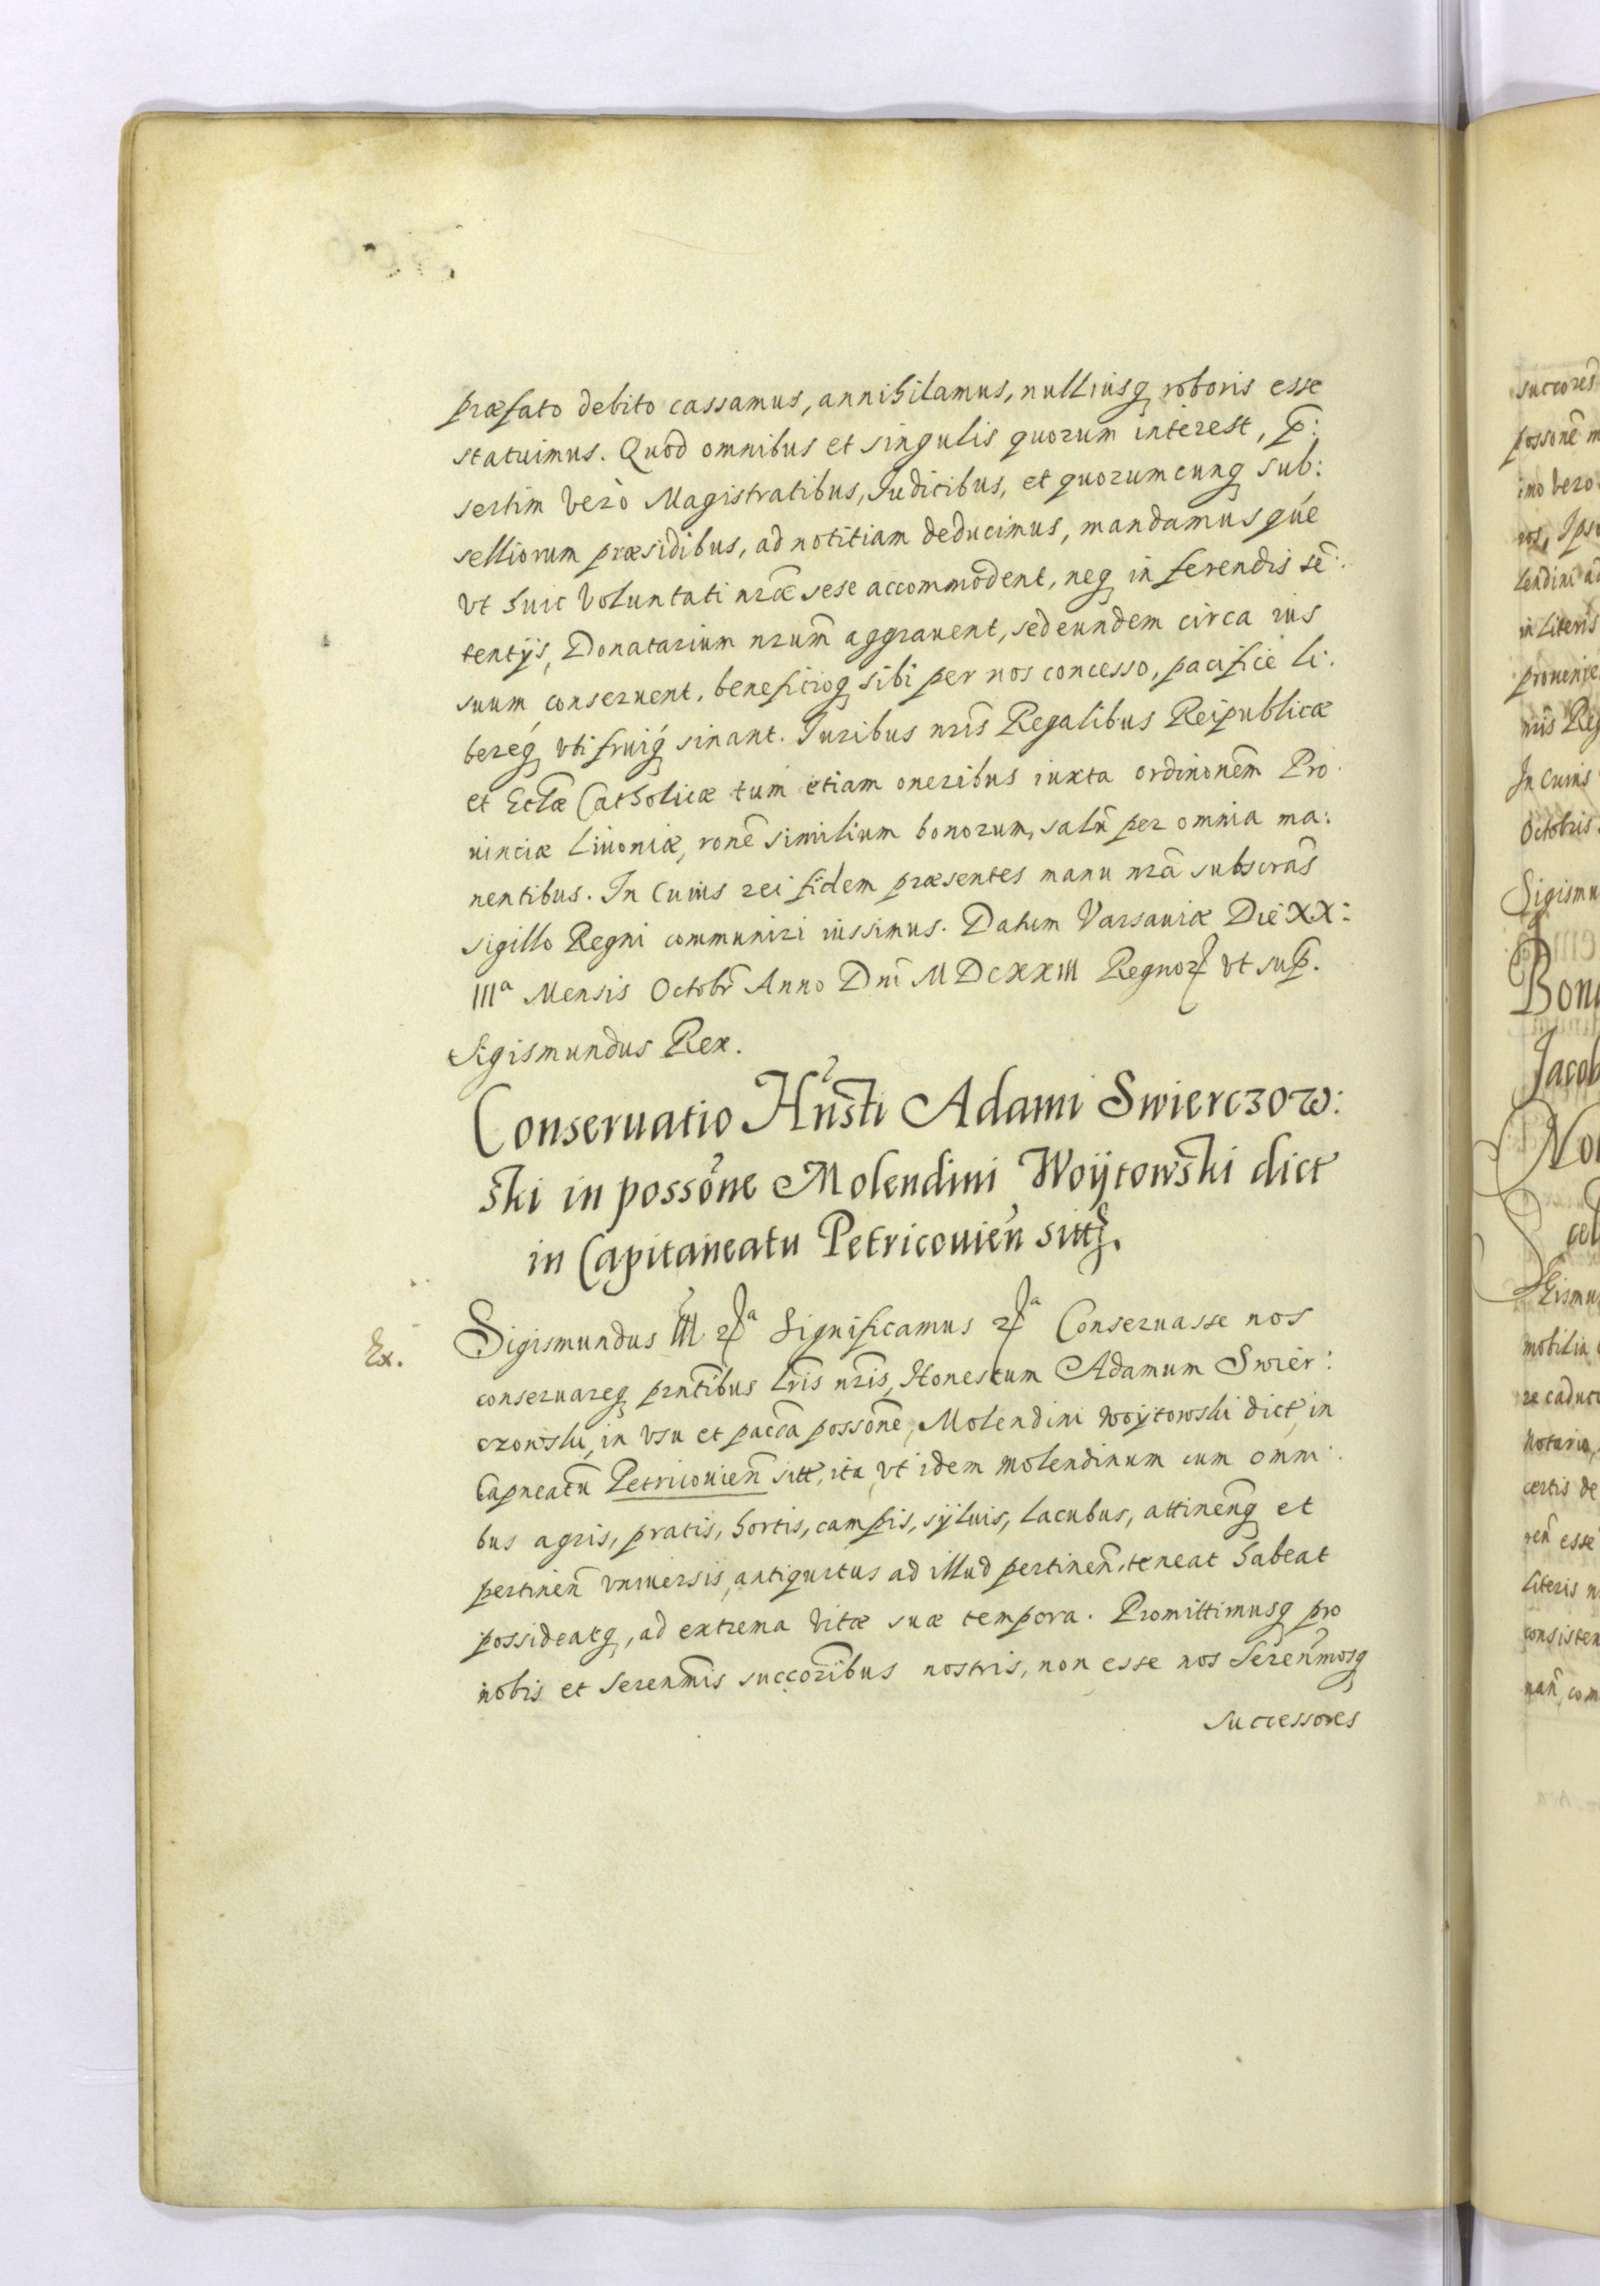 præfato debito cassamus, annihilamus, nulliusq roboris esse
statuimus. Quod omnibus et singulis quorum interest, p̄:
sertim vero Magistratibus, Iudicibus, et quorumcunq sub:
selliorum præsidibus, ad notitiam deducimus, mandamusque
vt huic voluntati nræ sese accommodent, neq in ferendis sē:
tentijs, Donatarium nrum aggrauent, sed eundem circa ius
suum conseruent, beneficioq sibi per nos concesso, pacifice li:
bereq vti fruiq sinant. Iuribus nris Regalibus Reipublicæ
et Ecclæ Catholicæ tum etiam oneribus iuxta ordinonem Pro:
uinciæ Liuoniæ, rone similium bonorum, saluis per omnia ma:
nentibus. In cuius rei fidem præsentes manu nra subscras
sigillo Regni communiri iussimus. Datum Varsauiæ Die XX:
IIIa Mensis Octobr Anno Dni MDCXXIII Regnor vt sup.
Sigismundus Rex.
Conseruatio Hnsti Adami Swierczow:
ski in possone Molendini Woÿtowski dict
in Capitaneatu Petricouien sitt.
Ex. Sigismundus III etca Significamus etca Conseruasse nos
conseruareq prntibus Lris nris, Honestum Adamum Swier:
czowski, in vsu et paccca possone, Molendini woÿtowski dict, in
Capneatu Petricouien sitt, ita, vt idem molendinum cum omni:
bus agris, pratis, hortis, campis, sÿluis, lacubus, attinenq et
pertinen vniuersis, antiquitus ad illud pertinen, teneat habeat
possideatq, ad extrema vitæ suæ tempora. Promittimusq pro
nobis et Serenmis succoribus nostris, non esse nos Serenmosq
successores